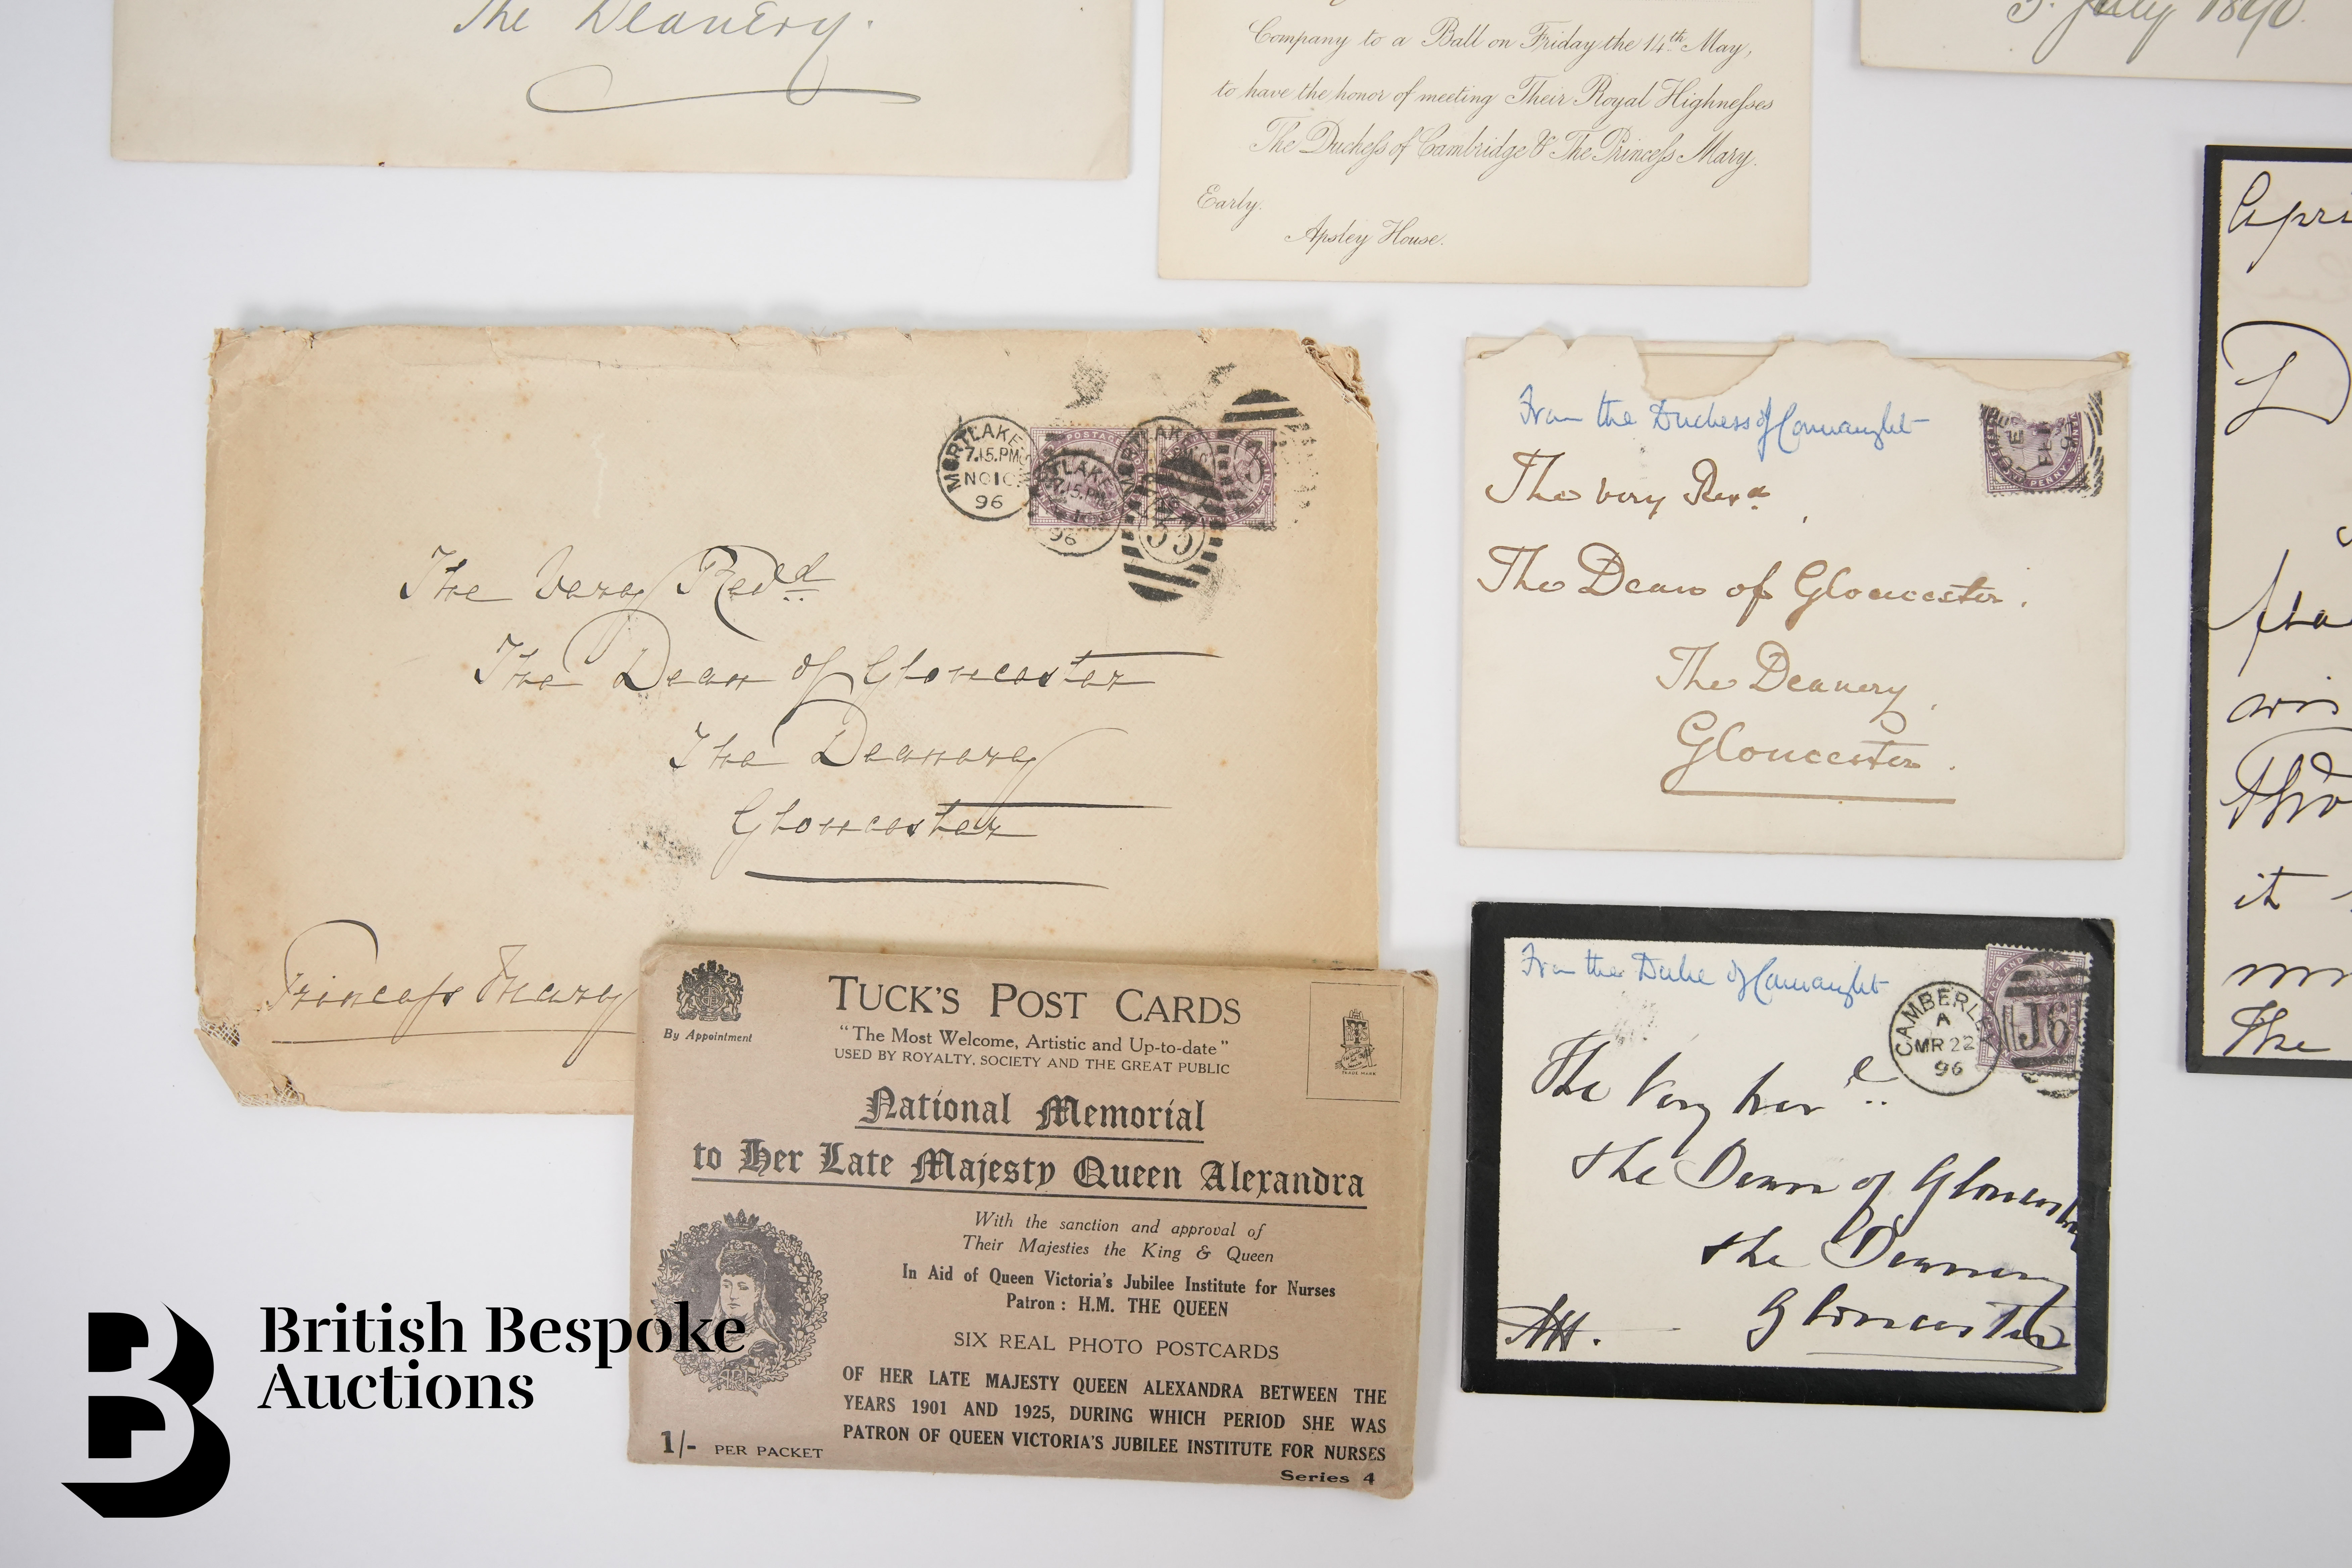 The Deanery.
Company to a Ball on Friday the 14th May,
to have the honor of meeting Their Royal Highnesses
The Duchess of Cambridge & The Princess Mary.
Early.
Apsley House.
5. July 1890.
MORTLAKE
7.15.PM
NO10
96
POSTAGE
MORTLAKE
7.15.PM
96
The Very Revd
The Dean of Gloucester
The Deanery
Gloucester
Princess Mary
From the Duchess of Connaught
The Very Revd
The Dean of Gloucester.
The Deanery,
Gloucester.
From the Duke of Connaught
CAMBERLEY
A
MR 22
96
J6
The Very Rev
the Dean of Gloucester
the Deanery
Gloucester
By Appointment
TUCK'S POST CARDS
"The Most Welcome, Artistic and Up-to-date"
USED BY ROYALTY, SOCIETY AND THE GREAT PUBLIC
TRADE MARK
National Memorial
to Her Late Majesty Queen Alexandra
With the sanction and approval of
Their Majesties the King & Queen
In Aid of Queen Victoria's Jubilee Institute for Nurses
Patron : H.M. THE QUEEN
SIX REAL PHOTO POSTCARDS
OF HER LATE MAJESTY QUEEN ALEXANDRA BETWEEN THE
YEARS 1901 AND 1925, DURING WHICH PERIOD SHE WAS
PATRON OF QUEEN VICTORIA'S JUBILEE INSTITUTE FOR NURSES
1/- PER PACKET
Series 4
it
the
British Bespoke
Auctions